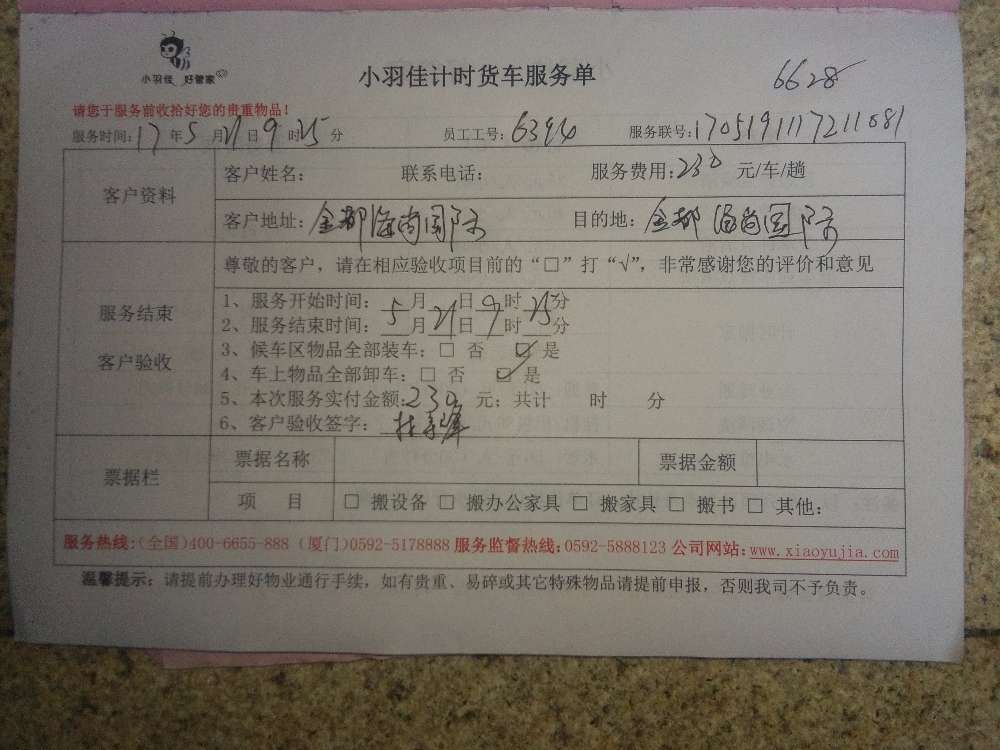 小羽佳 好管家
小羽佳计时货车服务单
6628
请您于服务前收拾好您的贵重物品！
服务时间：17年5月21日9时25分 员工工号：6394 服务联号：1705191117211081
客户资料
客户姓名： 联系电话： 服务费用：230 元/车/趟
客户地址：金都海尚国际 目的地：金都海尚国际
服务结束
客户验收
尊敬的客户，请在相应验收项目前的“□”打“√”，非常感谢您的评价和意见
1、服务开始时间：5月21日9时25分
2、服务结束时间：5月21日9时25分
3、候车区物品全部装车：□ 否 ☑ 是
4、车上物品全部卸车：□ 否 ☑ 是
5、本次服务实付金额：230 元；共计 时 分
6、客户验收签字：
票据栏
票据名称 票据金额
项 目 □ 搬设备 □ 搬办公家具 □ 搬家具 □ 搬书 □ 其他：
服务热线：(全国)400-6655-888 (厦门)0592-5178888 服务监督热线：0592-5888123 公司网站：www.xiaoyujia.com
温馨提示：请提前办理好物业通行手续，如有贵重、易碎或其它特殊物品请提前申报，否则我司不予负责。